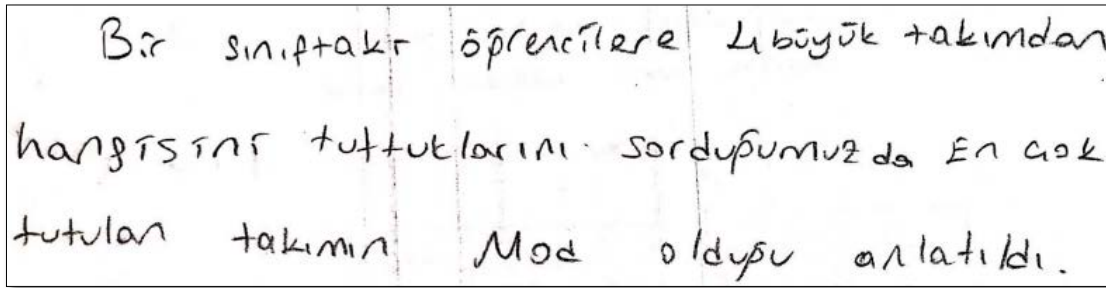 Bir sınıftaki öğrencilere 4 büyük takımdan
hangisini tuttuklarını sorduğumuzda En çok
tutulan takımın Mod olduğu anlatıldı.